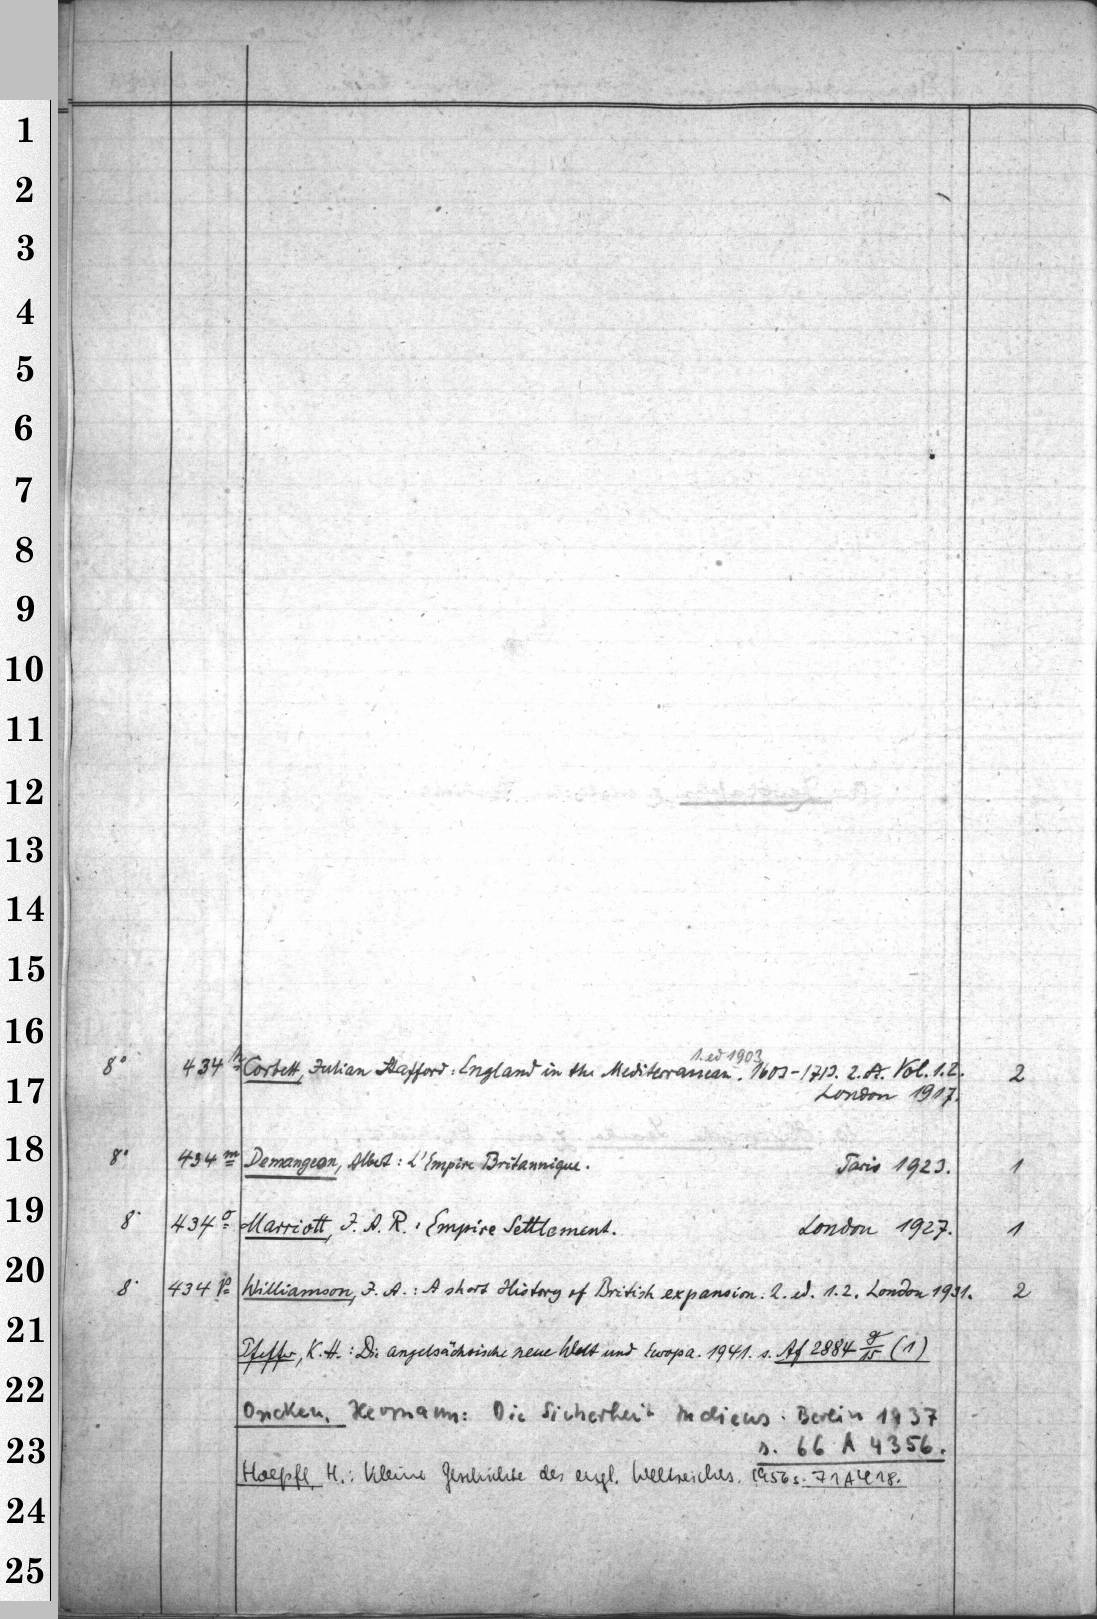 1
2
3
4
5
6
7
8
9
10
11
12
13
14
15
16
17
18
19
20
21
22
23
24
25
1. ed 1903
8° 434 h Corbett, Julian Stafford: England in the Mediterranean. 1603-1713. 2. A. Vol. 1.2. 2
London 1917.
8° 434 m Demangeon, Albert: L'Empire Britannique. Paris 1923. 1
8° 434 o Marriott, J. A. R.: Empire Settlement. London 1927. 1
8° 434 p Williamson, J. A.: A short History of British expansion. 2. ed. 1.2. London 1931. 2
Pfeffer, K. H.: Die angelsächsische neue Welt und Europa. 1941. s. Af 2884 g/15 (1)
Oncken, Hermann: Die Sicherheit Indiens. Berlin 1937
s. 66 A 4356.
Haepfl, H.: Kleine Geschichte des engl. Weltreiches. 1956 s. 71A418.